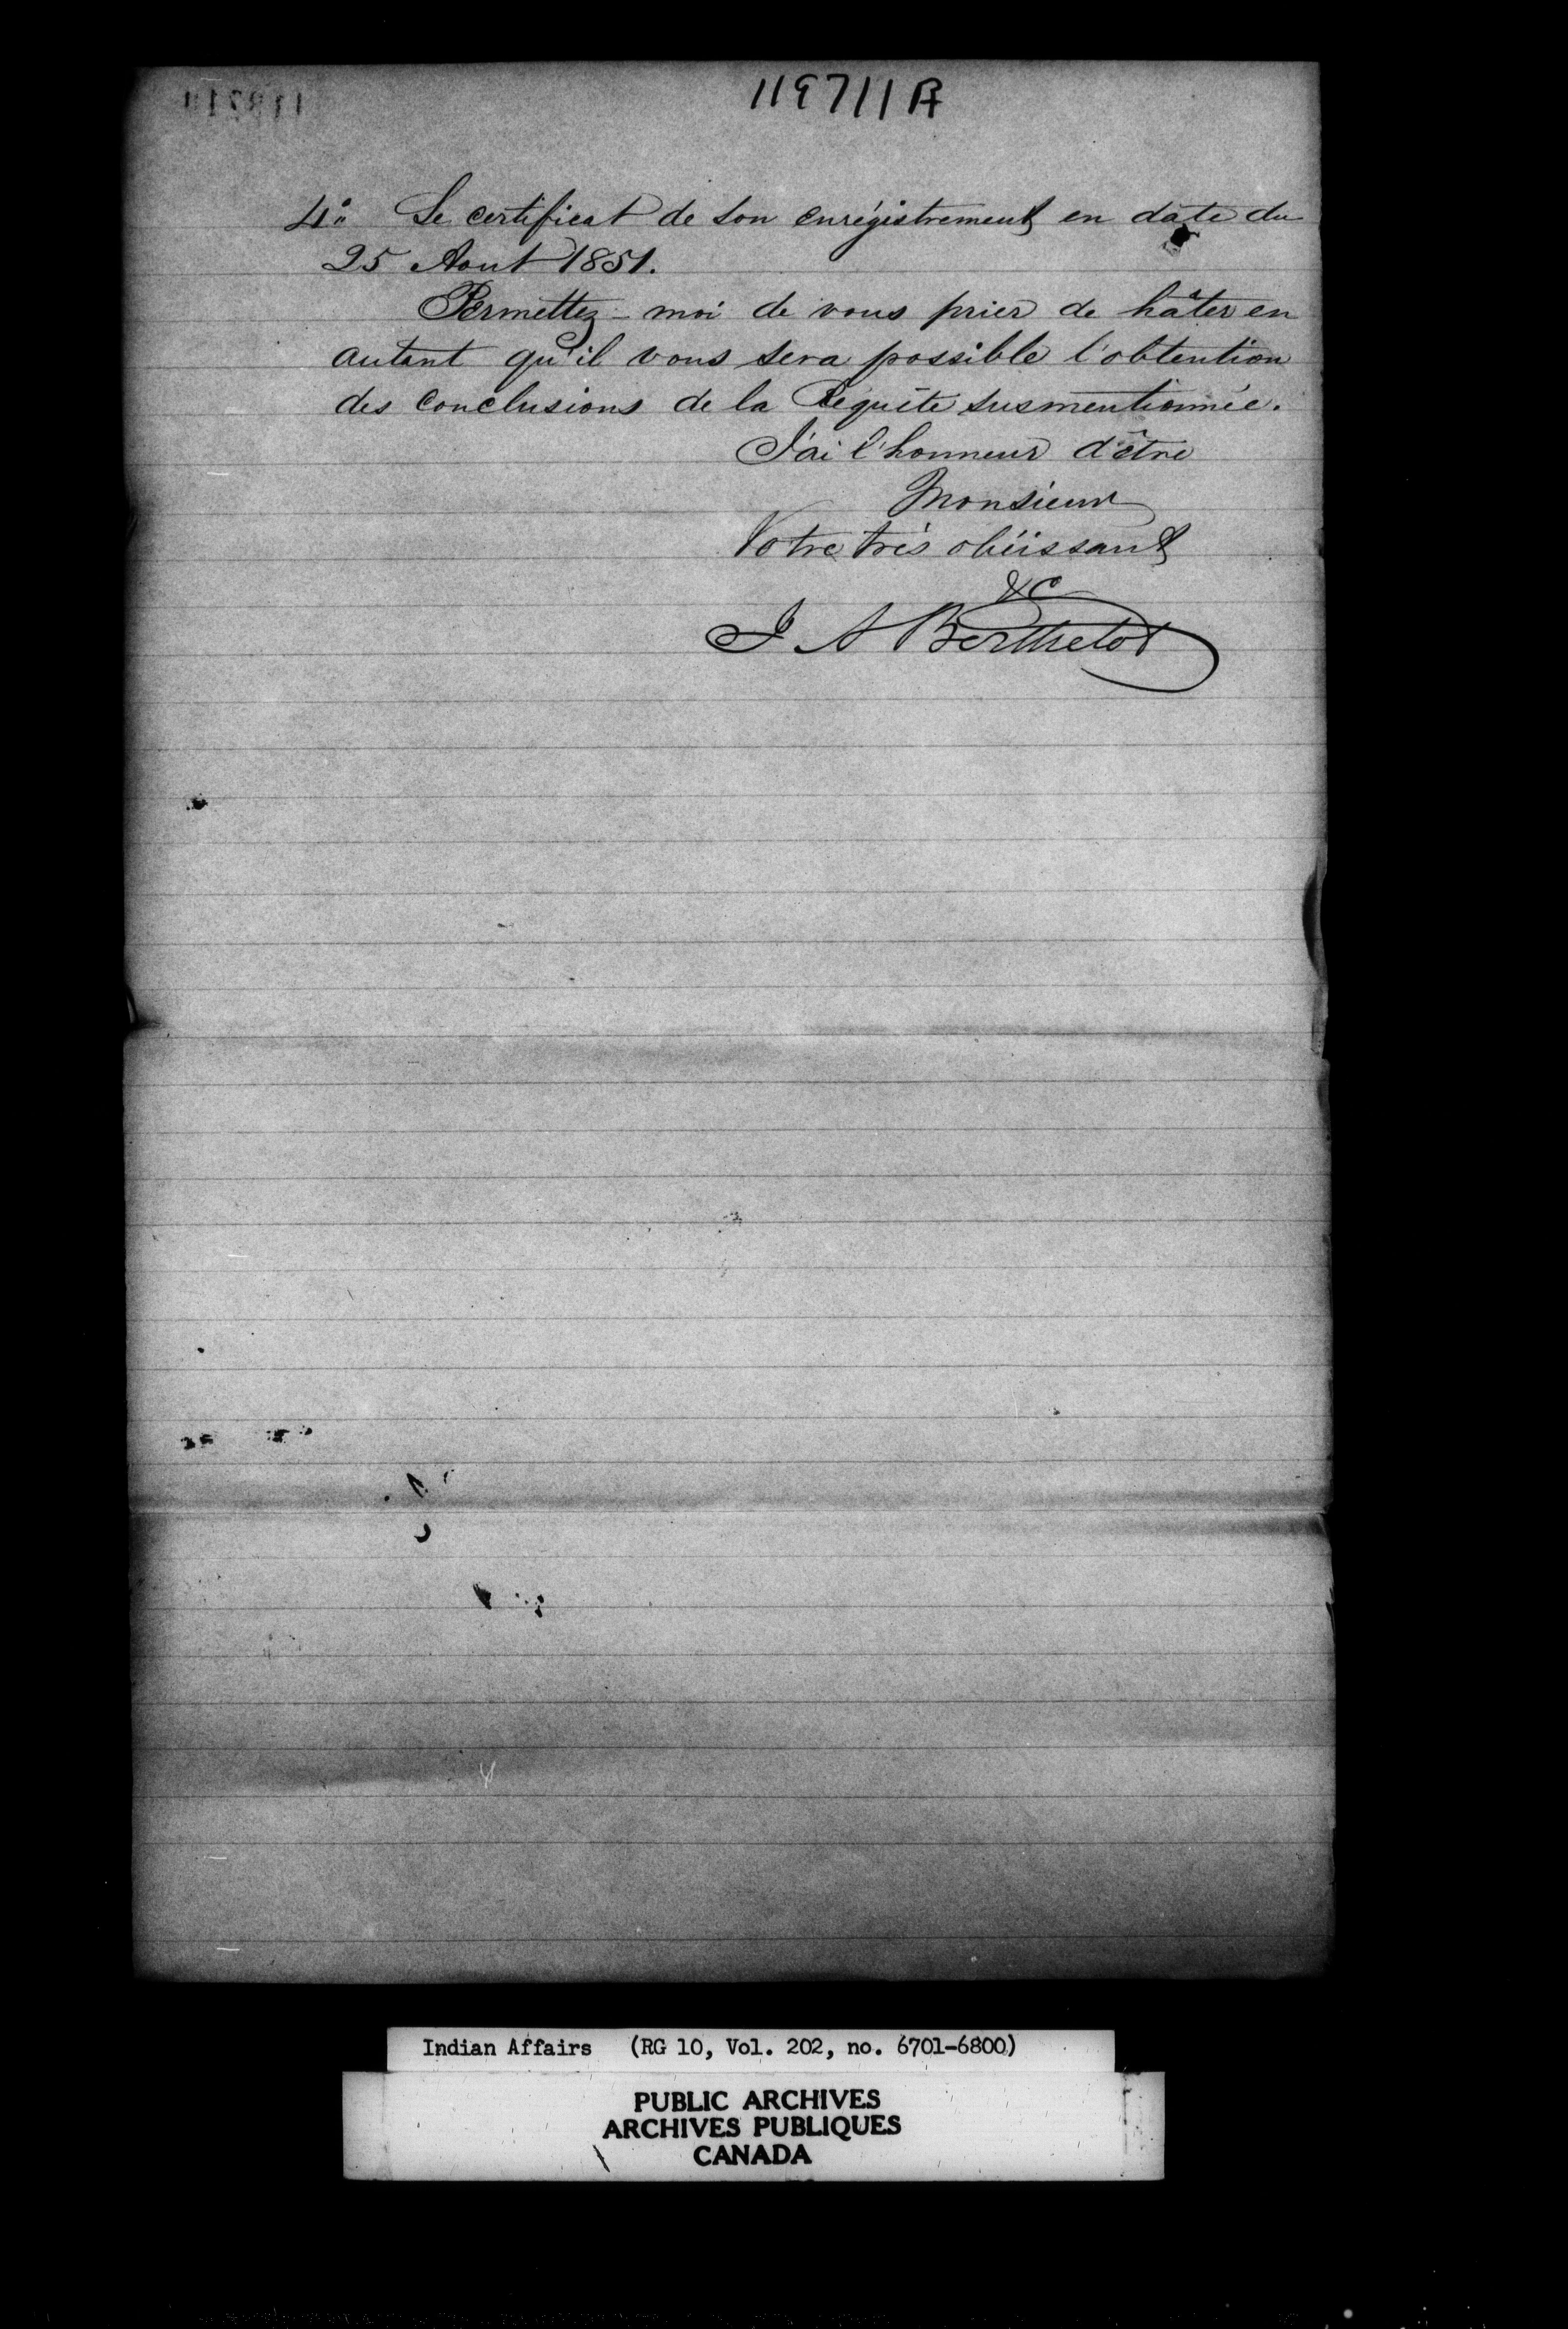 119711A
4° Le certificat de son enrégistrement en date du
25 Aout 1851.
Permettez-moi de vous prier de hâter en
autant qu'il vous sera possible l'obtention
des conclusions de la Requête susmentionnée.
J'ai l'honneur d'être
Monsieur
Votre très obéissant
&c
J A Berthelot
Indian Affairs (RG 10, Vol. 202, no. 6701-6800)
PUBLIC ARCHIVES
ARCHIVES PUBLIQUES
CANADA